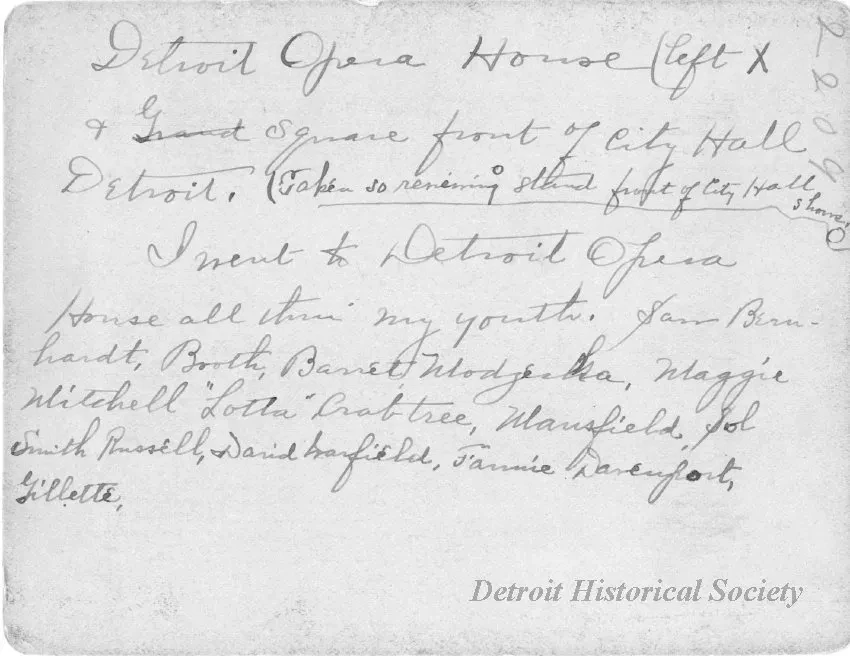 Detroit Opera House (left X
2209
& Grand Square front of City Hall
Detroit. (Taken so reviewing stand front of City Hall
shows.
I went to Detroit Opera
House all thru my youth. Sara Bern-
hardt, Booth, Barret Modjeska, Maggie
Mitchell "Lotta" Crabtree, Mansfield, Sol
Smith Russell, David Warfield, Fannie Davenport,
Gillette,
Detroit Historical Society